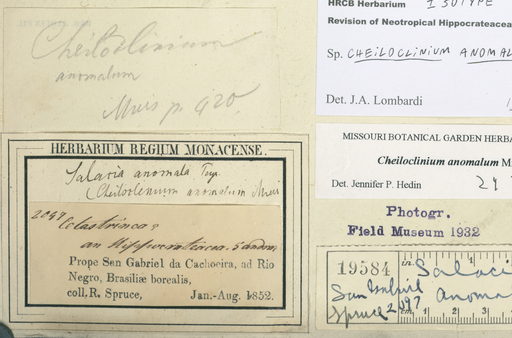 Cheiloclinium
anomalum
Miers p. 420
HERBARIUM REGIUM MONACENSE.
Salacia anomala
(Cheiloclinium anomalum Miers
2097 Celastrinea?
an Hippocratiacea.
Prope San Gabriel da Cachoeira, ad Rio
Negro, Brasiliæ borealis,
coll. R. Spruce, Jan.-Aug. 1852.
HRCB Herbarium ISOTYPE
Revision of Neotropical Hippocrateacea
Sp. CHEILOCLINIUM ANOMAL
Det. J.A. Lombardi
MISSOURI BOTANICAL GARDEN HERBA
Cheiloclinium anomalum M
Det. Jennifer P. Hedin
Photogr.
Field Museum 1932
19584 in. Salaci
San Gabriel Anoma
Spruce 2097 cm 1 2 3